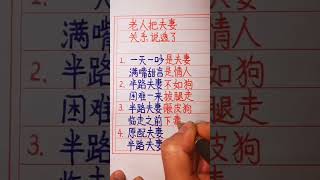 老人把夫妻
关系说透了
1. 一天一吵是夫妻
满嘴甜言是情人
2. 半路夫妻不如狗
困难一来拔腿走
3. 半路夫妻皮狗
临走之前下
4. 原配夫妻
半路夫妻